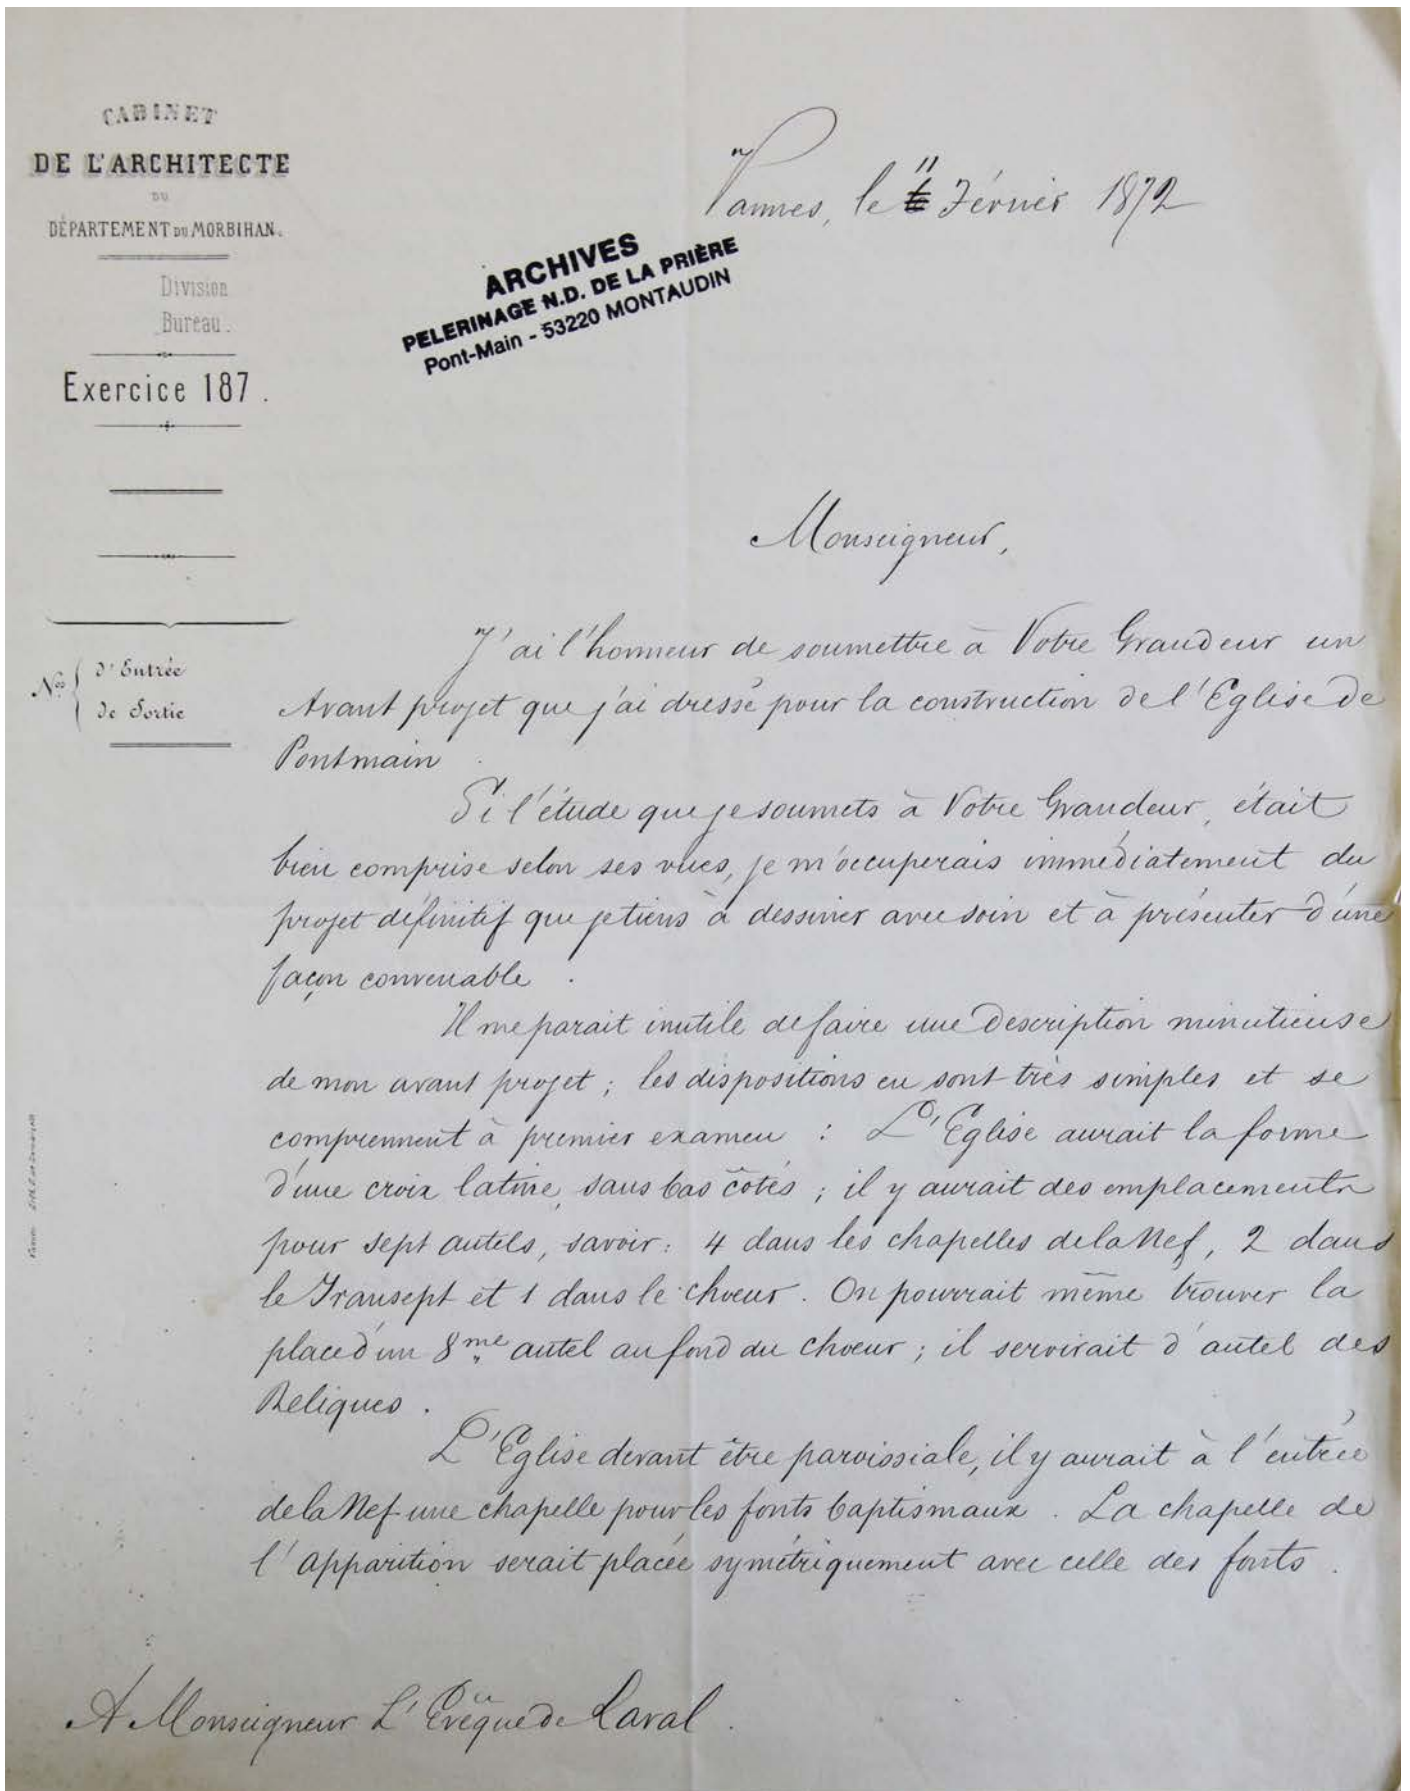 CABINET
DE L'ARCHITECTE
DU
DÉPARTEMENT DU MORBIHAN.
Division
Bureau.
Exercice 187 .
Nos
d'Entrée
de Sortie
Vannes, le 11 Février 1872
ARCHIVES
PELERINAGE N.D. DE LA PRIÈRE
Pont-Main - 53220 MONTAUDIN
Monseigneur,
J'ai l'honneur de soumettre à Votre Grandeur un
Avant projet que j'ai dressé pour la construction de l'Eglise de
Pontmain.
Si l'étude que je soumets à Votre Grandeur, était
bien comprise selon ses vues, je m'occuperais immédiatement du
projet définitif que je tiens à dessiner avec soin et à présenter d'une
façon convenable.
Il me parait inutile de faire une description minutieuse
de mon avant projet ; les dispositions en sont très simples et se
comprennent à premier examen : L'Eglise aurait la forme
d'une croix latine, sans bas côtés ; il y aurait des emplacements
pour sept autels, savoir : 4 dans les chapelles de la Nef, 2 dans
le Transept et 1 dans le choeur. On pourrait même trouver la
place d'un 8me autel au fond du choeur ; il servirait d'autel des
Reliques.
L'Eglise devant être paroissiale, il y aurait à l'entrée
de la Nef une chapelle pour les fonts baptismaux. La chapelle de
l'apparition serait placée symétriquement avec celle des fonts.
A Monseigneur L'Evêque de Laval.